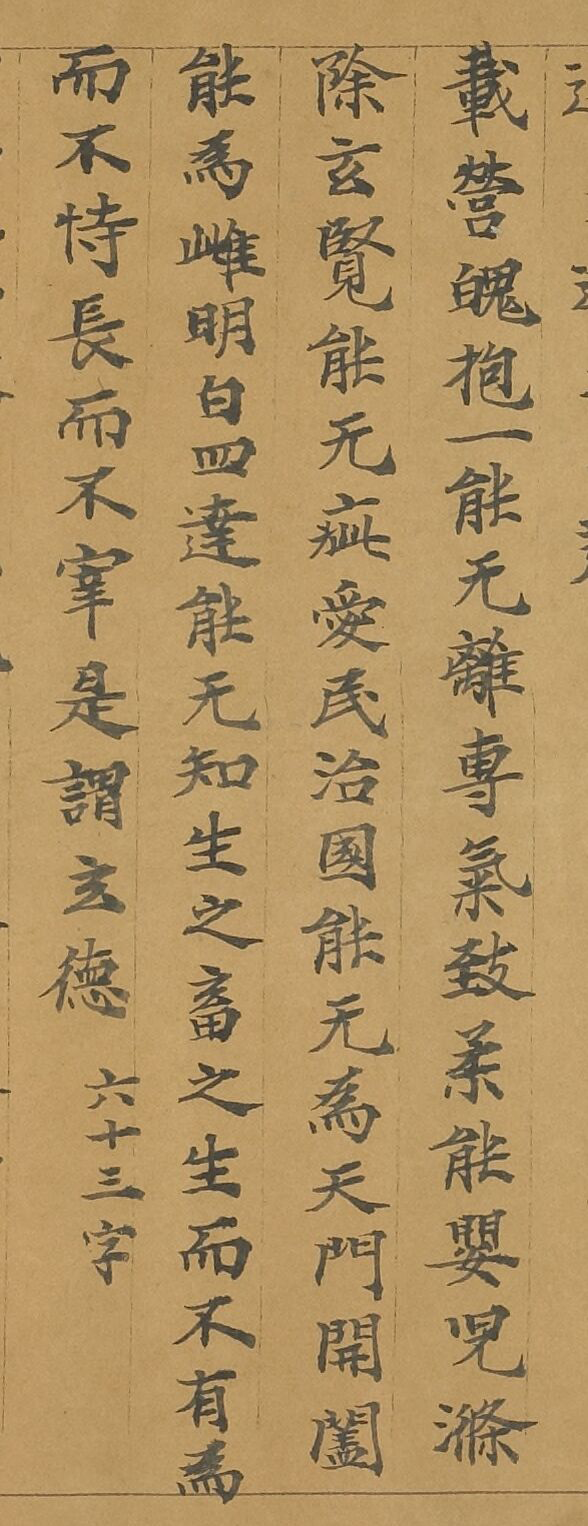 載營魄抱一能无離專氣致柔能嬰兒滌
除玄覽能无疵愛民治國能无為天門開闔
能為雌明白四達能无知生之畜之生而不有為
而不恃長而不宰是謂玄德 六十三字